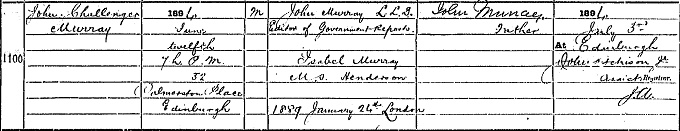 1100
John Challenger
Murray
1894
June
twelfth
7h. P.M.
32
Palmerston Place
Edinburgh
M
John Murray L.L.D.
Editor of Government Reports.
Isabel Murray
M.S. Henderson
1889 January 24th London
John Murray
Father
1894
July 3rd
At Edinburgh
John Aitchison, Jr
Assist Registrar.
J.A.